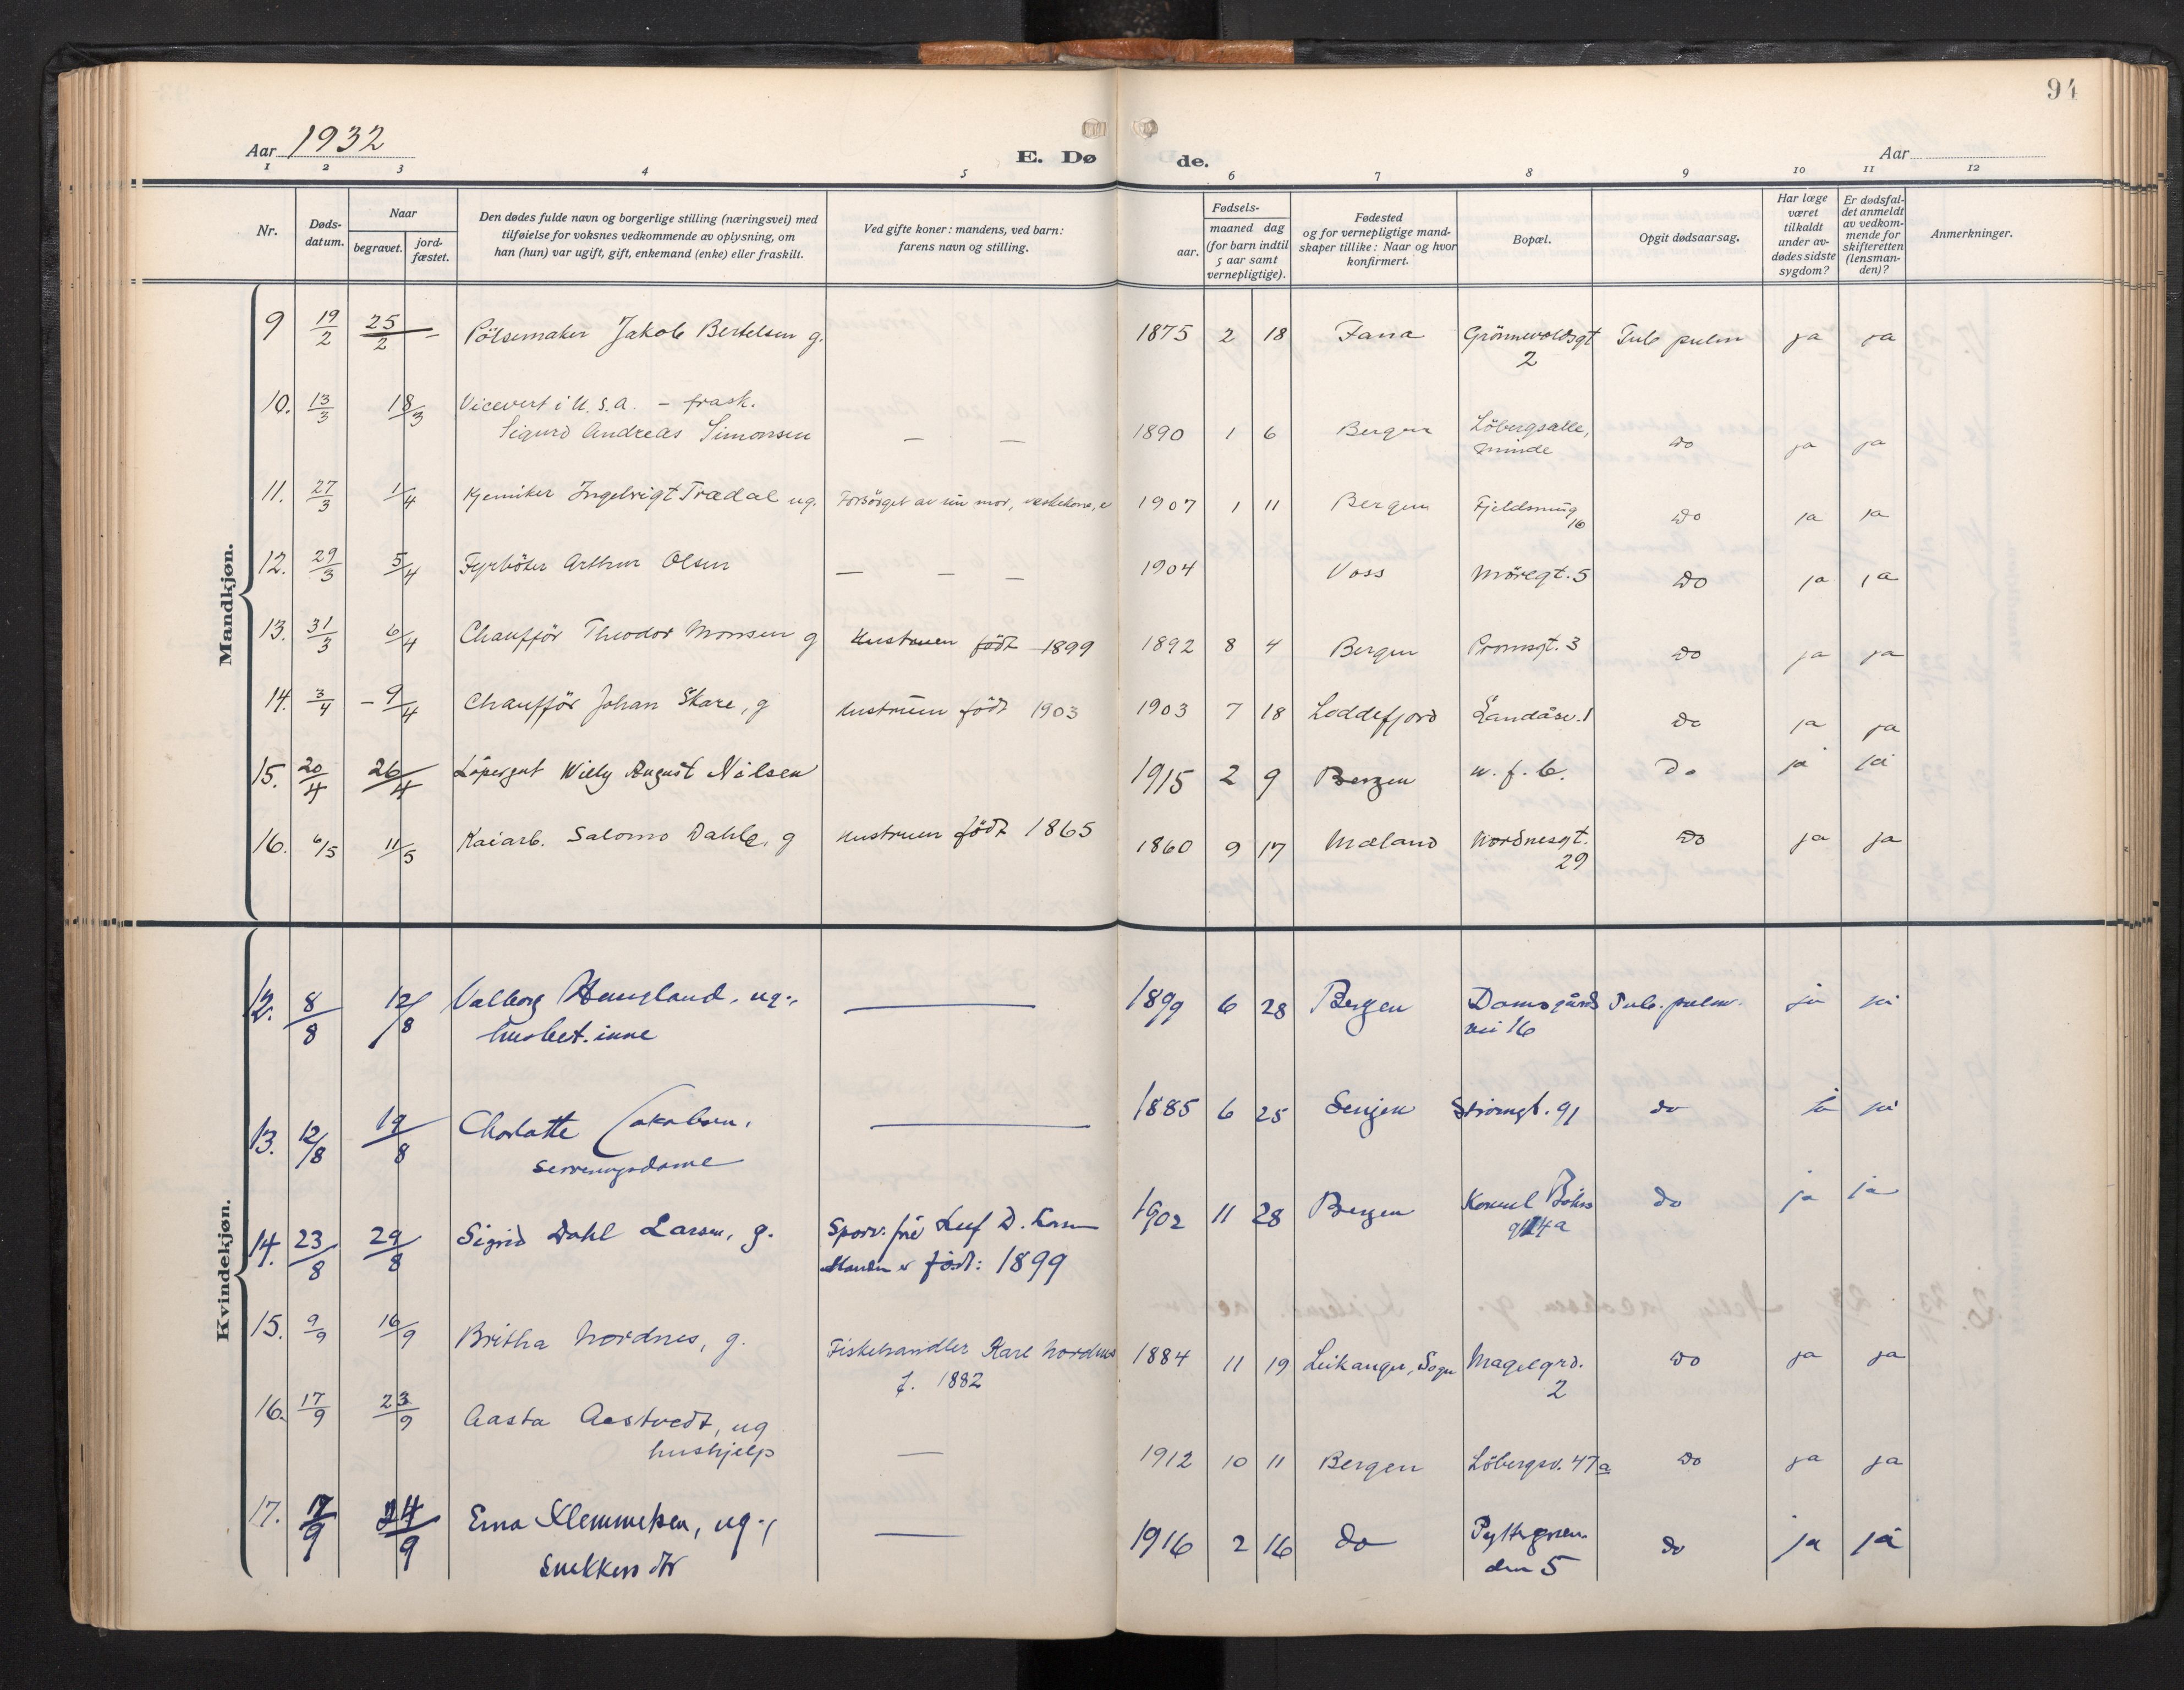 94
Aar 1932
E. Dø
de.
Aar
1 2 3 4 5 6 7 8 9 10 11 12
Nr.
Døds-
datum.
Naar
begravet.
jord-
fæstet.
Den dødes fulde navn og borgerlige stilling (næringsvei) med
tilføielse for voksnes vedkommende av oplysning, om
han (hun) var ugift, gift, enkemand (enke) eller fraskilt.
Ved gifte koner: mandens, ved barn:
farens navn og stilling.
Fødsels-
aar.
maaned dag
(for barn indtil
5 aar samt
vernepligtige).
Fødested
og for vernepligtige mand-
skaper tillike: Naar og hvor
konfirmert.
Bopæl.
Opgit dødsaarsag.
Har læge
været
tilkaldt
under av-
dødes sidste
sygdom?
Er dødsfal-
det anmeldt
av vedkom-
mende for
skifteretten
(lensman-
den)?
Anmerkninger.
Mandkjøn.
9 19/2 25/2 – Pölsemaker Jakob Bertelsen g. 1875 2 18 Fana Grönnevoldsgt 2 Tub pulm ja ja
10. 13/3 18/3 Vicevert i U.S.A. – frask.
Sigurd Andreas Simonsen — — 1890 1 6 Bergen Löbergsalle, Minde Do ja ja
11. 27/3 1/4 Kjemiker Ingebrigt Trædal ug. Forsörget av sin mor, 1907 1 11 Bergen Fjeldsmug 16 Do ja ja
12. 29/3 5/4 Fyrböter Arthur Olsen — — — 1904 Voss Möregt. 5 Do ja ja
13. 31/3 6/4 Chafför Theodor Monsen g Hustruen födt 1899 1892 8 4 Bergen Promsgt. 3 Do ja ja
14. 3/4 – 9/4 Chaufför Johan Skare, g Hustruen födt 1903 1903 7 18 Loddefjord Landåsv. 1 Do ja ja
15. 20/4 26/4 Löpergut Willy August Nilsen 1915 2 9 Bergen u. f. b. Do ja ja
16. 6/5 11/5 Kaiarb. Salomo Dahle, g Hustruen födt 1865 1860 9 17 Mæland Nordnesgt. 29 Do ja ja
Kvindekjøn.
12. 8/8 12/8 Valborg Haugland, ug.,
husbet. inne — 1899 6 28 Bergen Damsgårds vei 16 Tub. pulm. ja ja
13. 12/8 19/8 Charlotte Jakobsen,
serveringsdame — 1885 6 25 Senjen Strömgt. 91 do ja ja
14. 23/8 29/8 Sigrid Dahl Larsen, g. Sporv. Leif D. Larsen
Manden er födt: 1899 1902 11 28 Bergen Konsul Börs g 4a do ja ja
15. 9/9 16/9 Britha Nordnes, g. Fiskehandler Karl Nordnes
f. 1882 1884 11 19 Leikanger, Sogn Magelgrd. 2 Do ja ja
16. 17/9 23/9 Aasta Aastvedt, ug
hushjelp — 1912 10 11 Bergen Löbergsv. 47a Do ja ja
17. 17/9 24/9 Erna Klemmetsen, ug.,
Snekkers dtr — 1916 2 16 do Pyttergren den 5 do ja ja